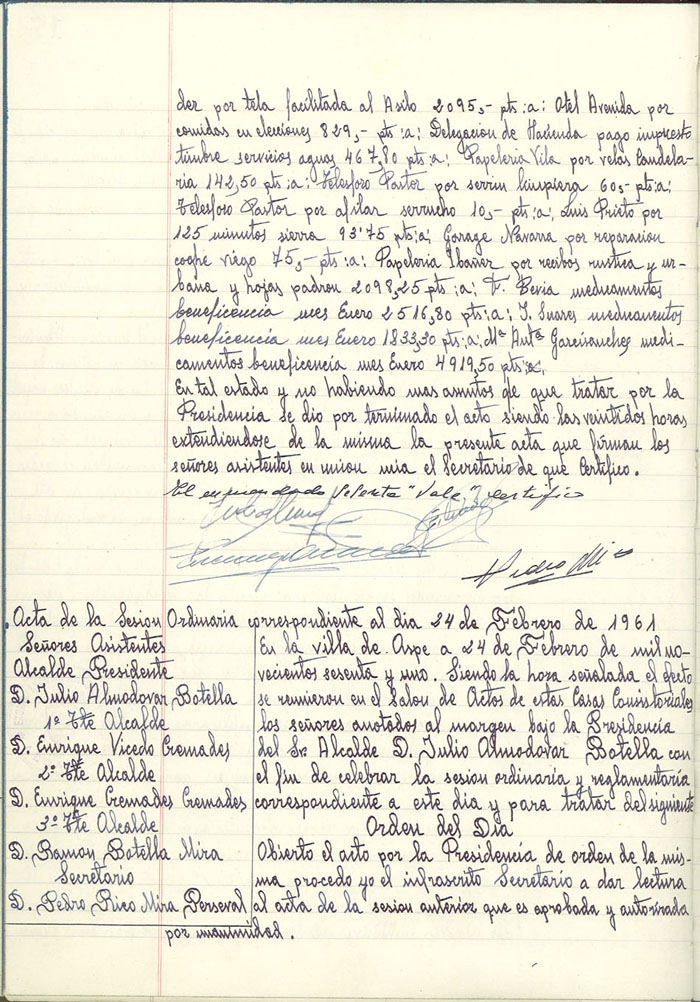 der por tela facilitada al Asilo 2095,- pts:a: Otel Avenida por
comidas en elecciones 829,- pts:a: Delegacion de Hacienda pago impuesto
timbre servicios aguas 467,80 pts:a: Papeleria Vila por velas Candela-
ria 142,50 pts:a: Telesforo Pastor por serrin limpieza 60,- pts:a:
Telesforo Pastor por afilar serrucho 10,- pts:a, Luis Prieto por
125 minutos sierra 93'75 pts:a; Garage Navarra por reparacion
coche riego 75,- pts:a: Papeleria Ibañez por recibos rustica y ur-
bana y hojas padron 2098,25 pts:a: F. Bevia medicamentos
beneficencia mes Enero 2516,80 pts:a: J. Suares medicamentos
beneficencia mes Enero 1833,30 pts:a; Mª Antª Garcisanchez medi-
camentos beneficencia mes Enero 4919,50 pts:a,
En tal estado y no habiendo mas asuntos de que tratar por la
Presidencia se dio por terminado el acto siendo las veintidos horas
extendiendose de la misma la presente acta que firman los
señores asistentes en union mia el Secretario de que Certifico.
El enmendado Sesenta "Vale" certifico
Pedro Rico
Acta de la Sesion Ordinaria correspondiente al dia 24 de Febrero de 1961
Señores Asistentes
Alcalde Presidente
D. Julio Almodovar Botella
1º Tte Alcalde
D. Enrique Vicedo Cremades
2º Tte Alcalde
D. Enrique Cremades Cremades
3º Tte Alcalde
D. Ramon Botella Mira
Secretario
D. Pedro Rico Mira Perseval
En la villa de Aspe a 24 de Febrero de mil no-
vecientos sesenta y uno. Siendo la hora señalada al efecto
se reunieron en el Salon de Actos de estas Casas Consistoriales
los señores anotados al margen bajo la Presidencia
del Sr. Alcalde D. Julio Almodovar Botella con
el fin de celebrar la sesion ordinaria y reglamentaria
correspondiente a este dia y para tratar del siguiente
Orden del Dia
Abierto el acto por la Presidencia de orden de la mis-
ma procedo yo el infrascrito Secretario a dar lectura
al acta de la sesion anterior que es aprobada y autorizada
por unanimidad.